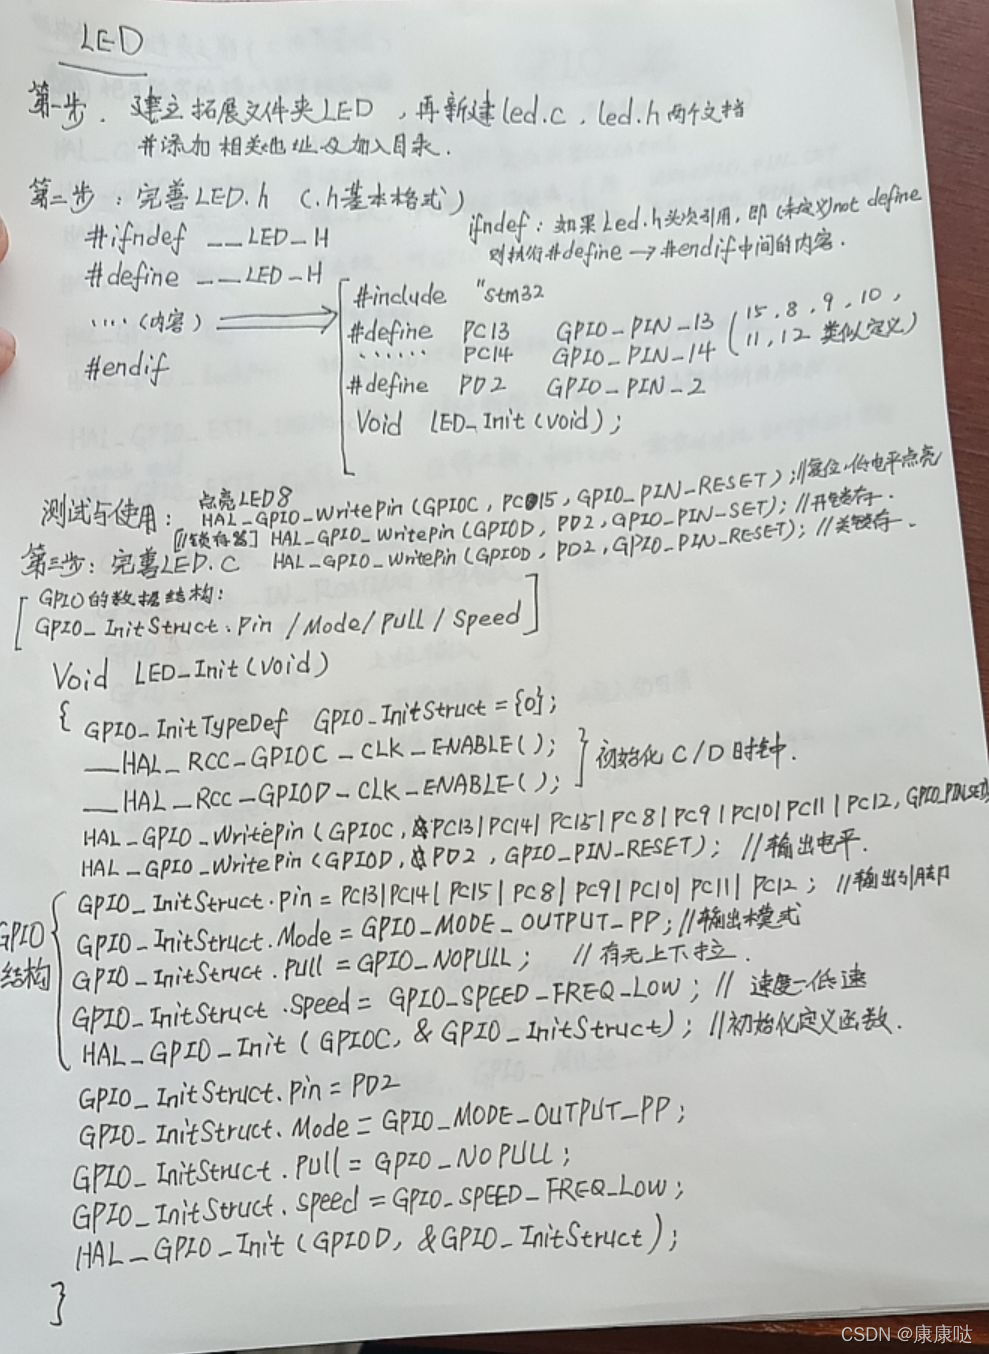 LED
第一步. 建立拓展文件夹LED , 再新建led.c , led.h 两个文档
并添加相关地址及加入目录.
第二步 : 完善LED.h (.h基本格式)
ifndef : 如果Led.h头次引用, 即(未定义)not define
则执行#define → #endif中间的内容.
#ifndef __LED_H
#define __LED_H
....(内容)
#endif
#include "stm32
#define PC13 GPIO_PIN_13 (15, 8, 9, 10,
...... PC14 GPIO_PIN_14 11, 12 类似定义)
#define PD2 GPIO_PIN_2
Void LED_Init(void);
测试与使用: 点亮LED8
HAL_GPIO_WritePin(GPIOC, PC15, GPIO_PIN_RESET); //复位,低电平点亮
[//锁存器] HAL_GPIO_WritePin(GPIOD, PD2, GPIO_PIN_SET); //开锁存.
第三步: 完善LED.C HAL_GPIO_WritePin(GPIOD, PD2, GPIO_PIN_RESET); //关锁存.
GPIO的数据结构:
GPIO_InitStruct.Pin /Mode/Pull/Speed
Void LED_Init(void)
{ GPIO_InitTypeDef GPIO_InitStruct = {0};
__HAL_RCC_GPIOC_CLK_ENABLE();
__HAL_RCC_GPIOD_CLK_ENABLE(); } 初始化C/D时钟.
HAL_GPIO_WritePin(GPIOC, PC13|PC14|PC15|PC8|PC9|PC10|PC11|PC12, GPIO_PIN_SET);
HAL_GPIO_WritePin(GPIOD, PD2, GPIO_PIN_RESET); //输出电平.
GPIO结构 { GPIO_InitStruct.Pin = PC13|PC14|PC15|PC8|PC9|PC10|PC11|PC12; //输出引脚
GPIO_InitStruct.Mode = GPIO_MODE_OUTPUT_PP; //输出模式
GPIO_InitStruct.PULL = GPIO_NOPULL; //有无上下拉.
GPIO_InitStruct.Speed = GPIO_SPEED_FREQ_LOW; //速度-低速
HAL_GPIO_Init(GPIOC, &GPIO_InitStruct); //初始化定义函数.
GPIO_InitStruct.Pin = PD2
GPIO_InitStruct.Mode = GPIO_MODE_OUTPUT_PP;
GPIO_InitStruct.PULL = GPIO_NOPULL;
GPIO_InitStruct.Speed = GPIO_SPEED_FREQ_LOW;
HAL_GPIO_Init(GPIOD, &GPIO_InitStruct);
}
CSDN @康康哒